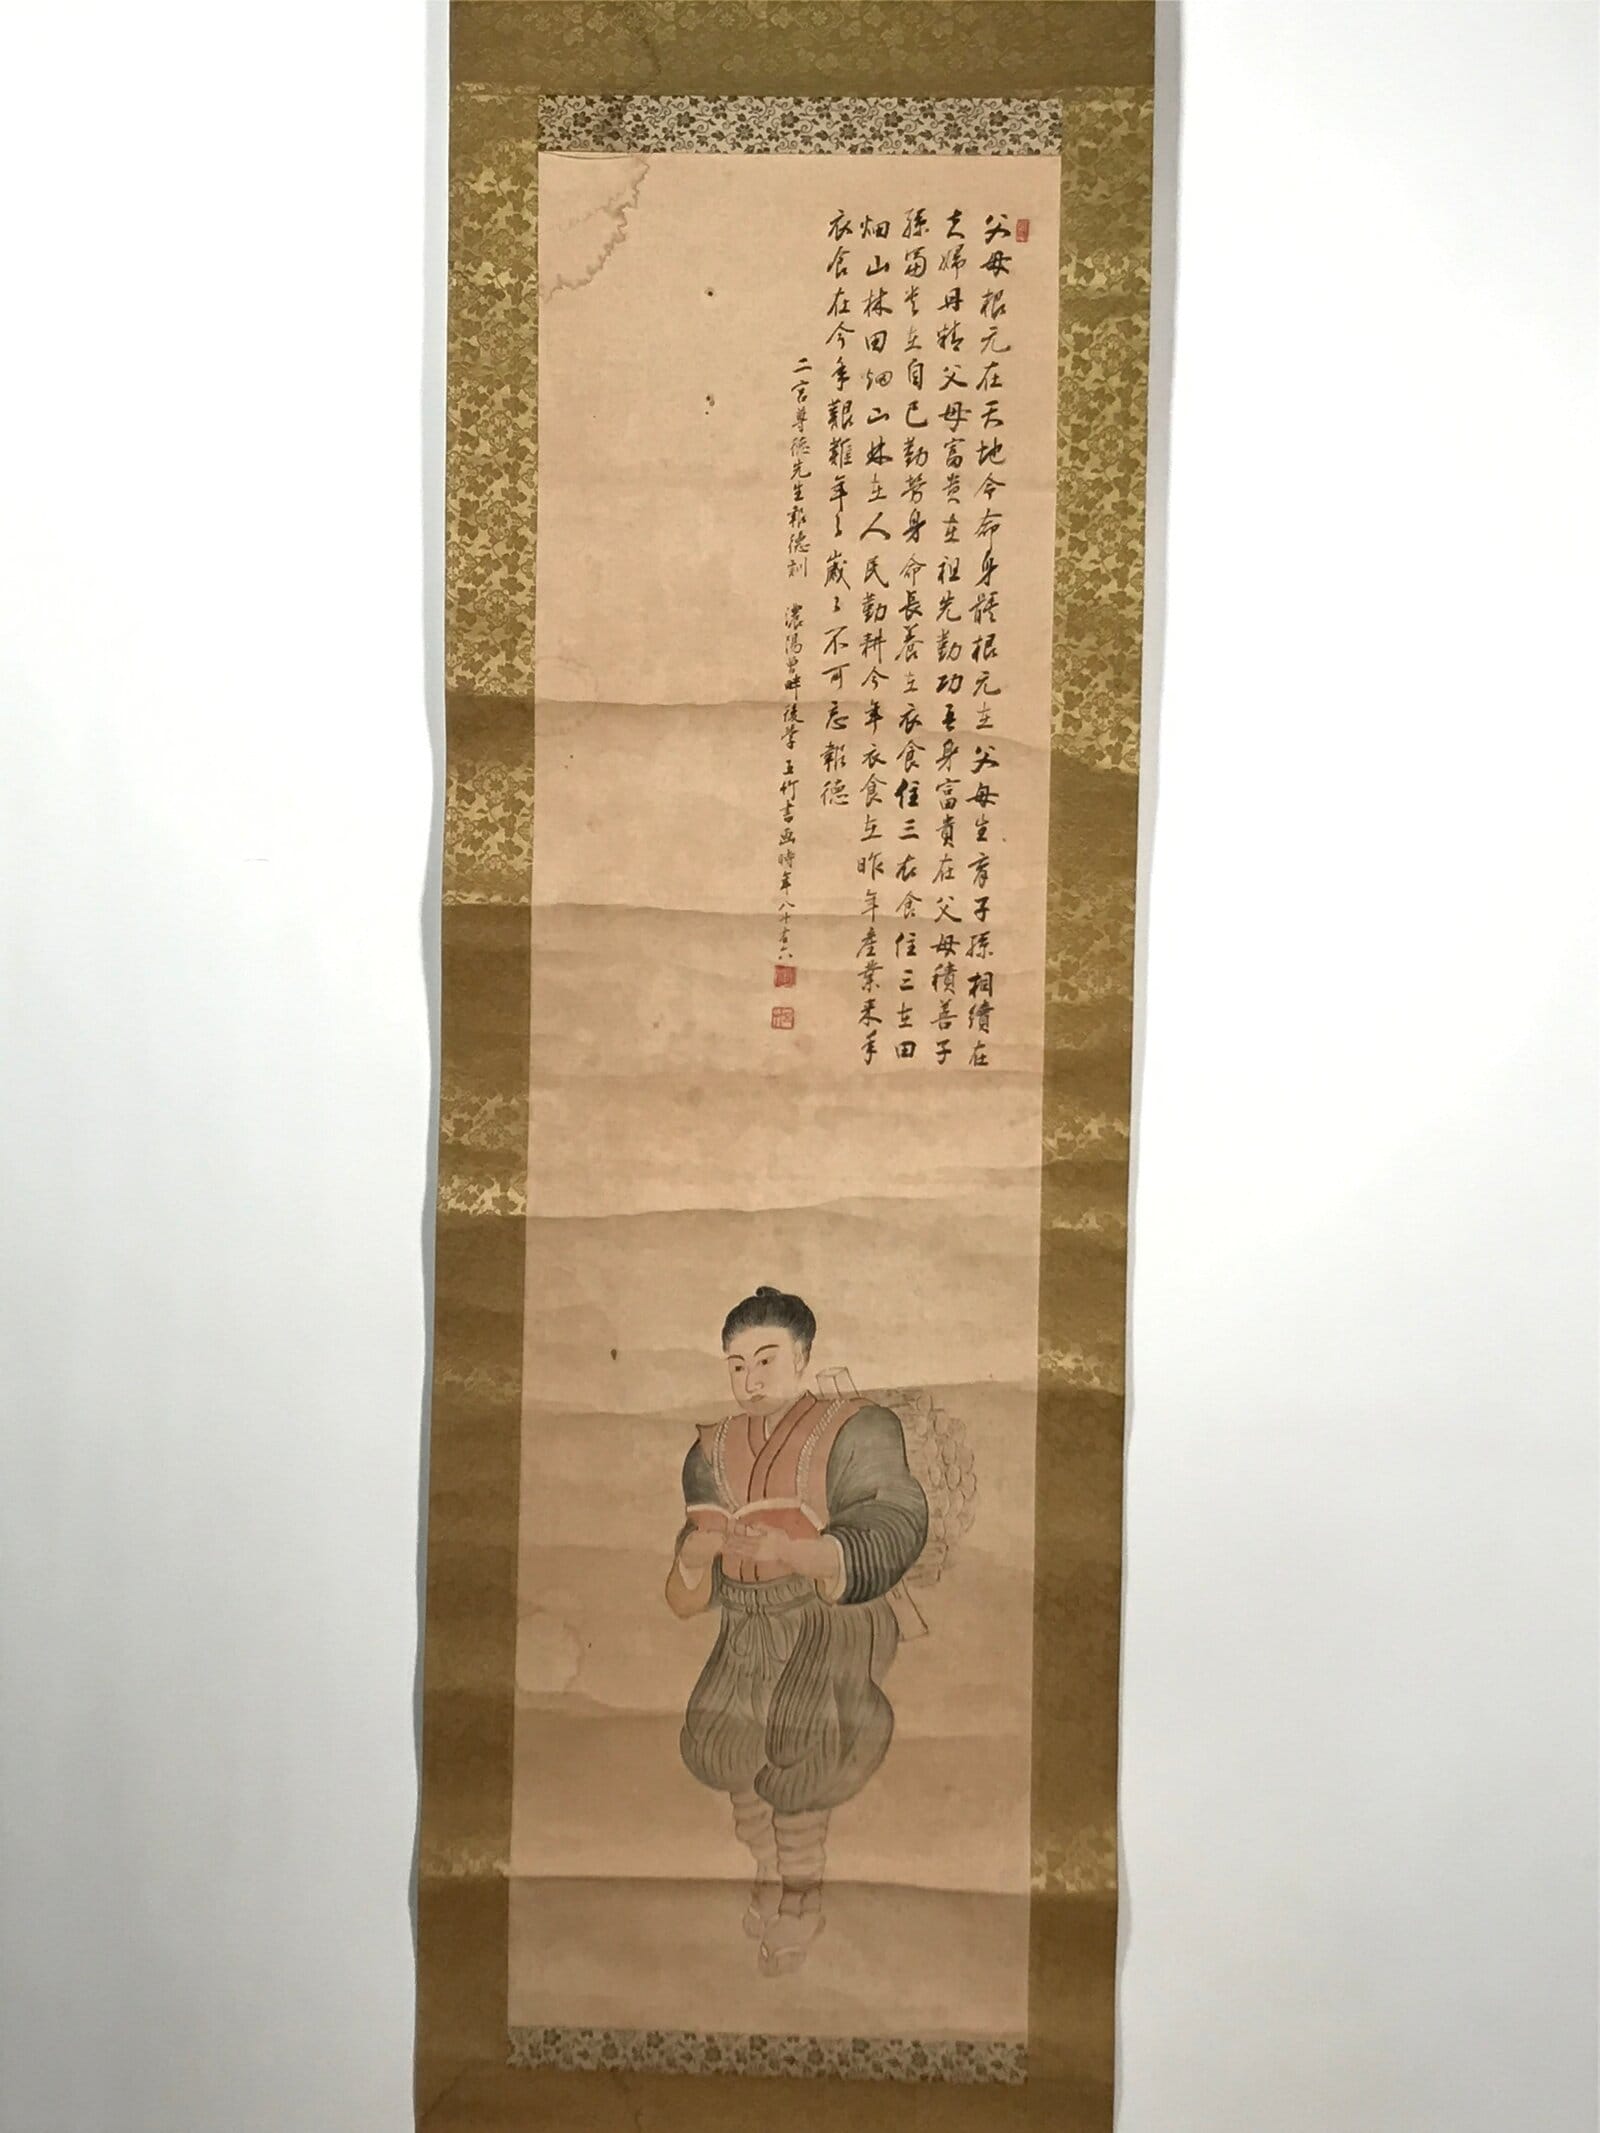 父母根元在天地令命身體根元在父母生育子孫相續在
夫婦丹精父母富貴在祖先勤功吾身富貴在父母積善子
孫富貴在自己勤労身命長養在衣食住三衣食住三在田
畑山林田畑山林在人民勤耕今年衣食在昨年産業来年
衣食在今年艱難年々歳々不可忘報徳
二宮尊徳先生報徳訓 濃陽 後学 玉竹書画時年八十